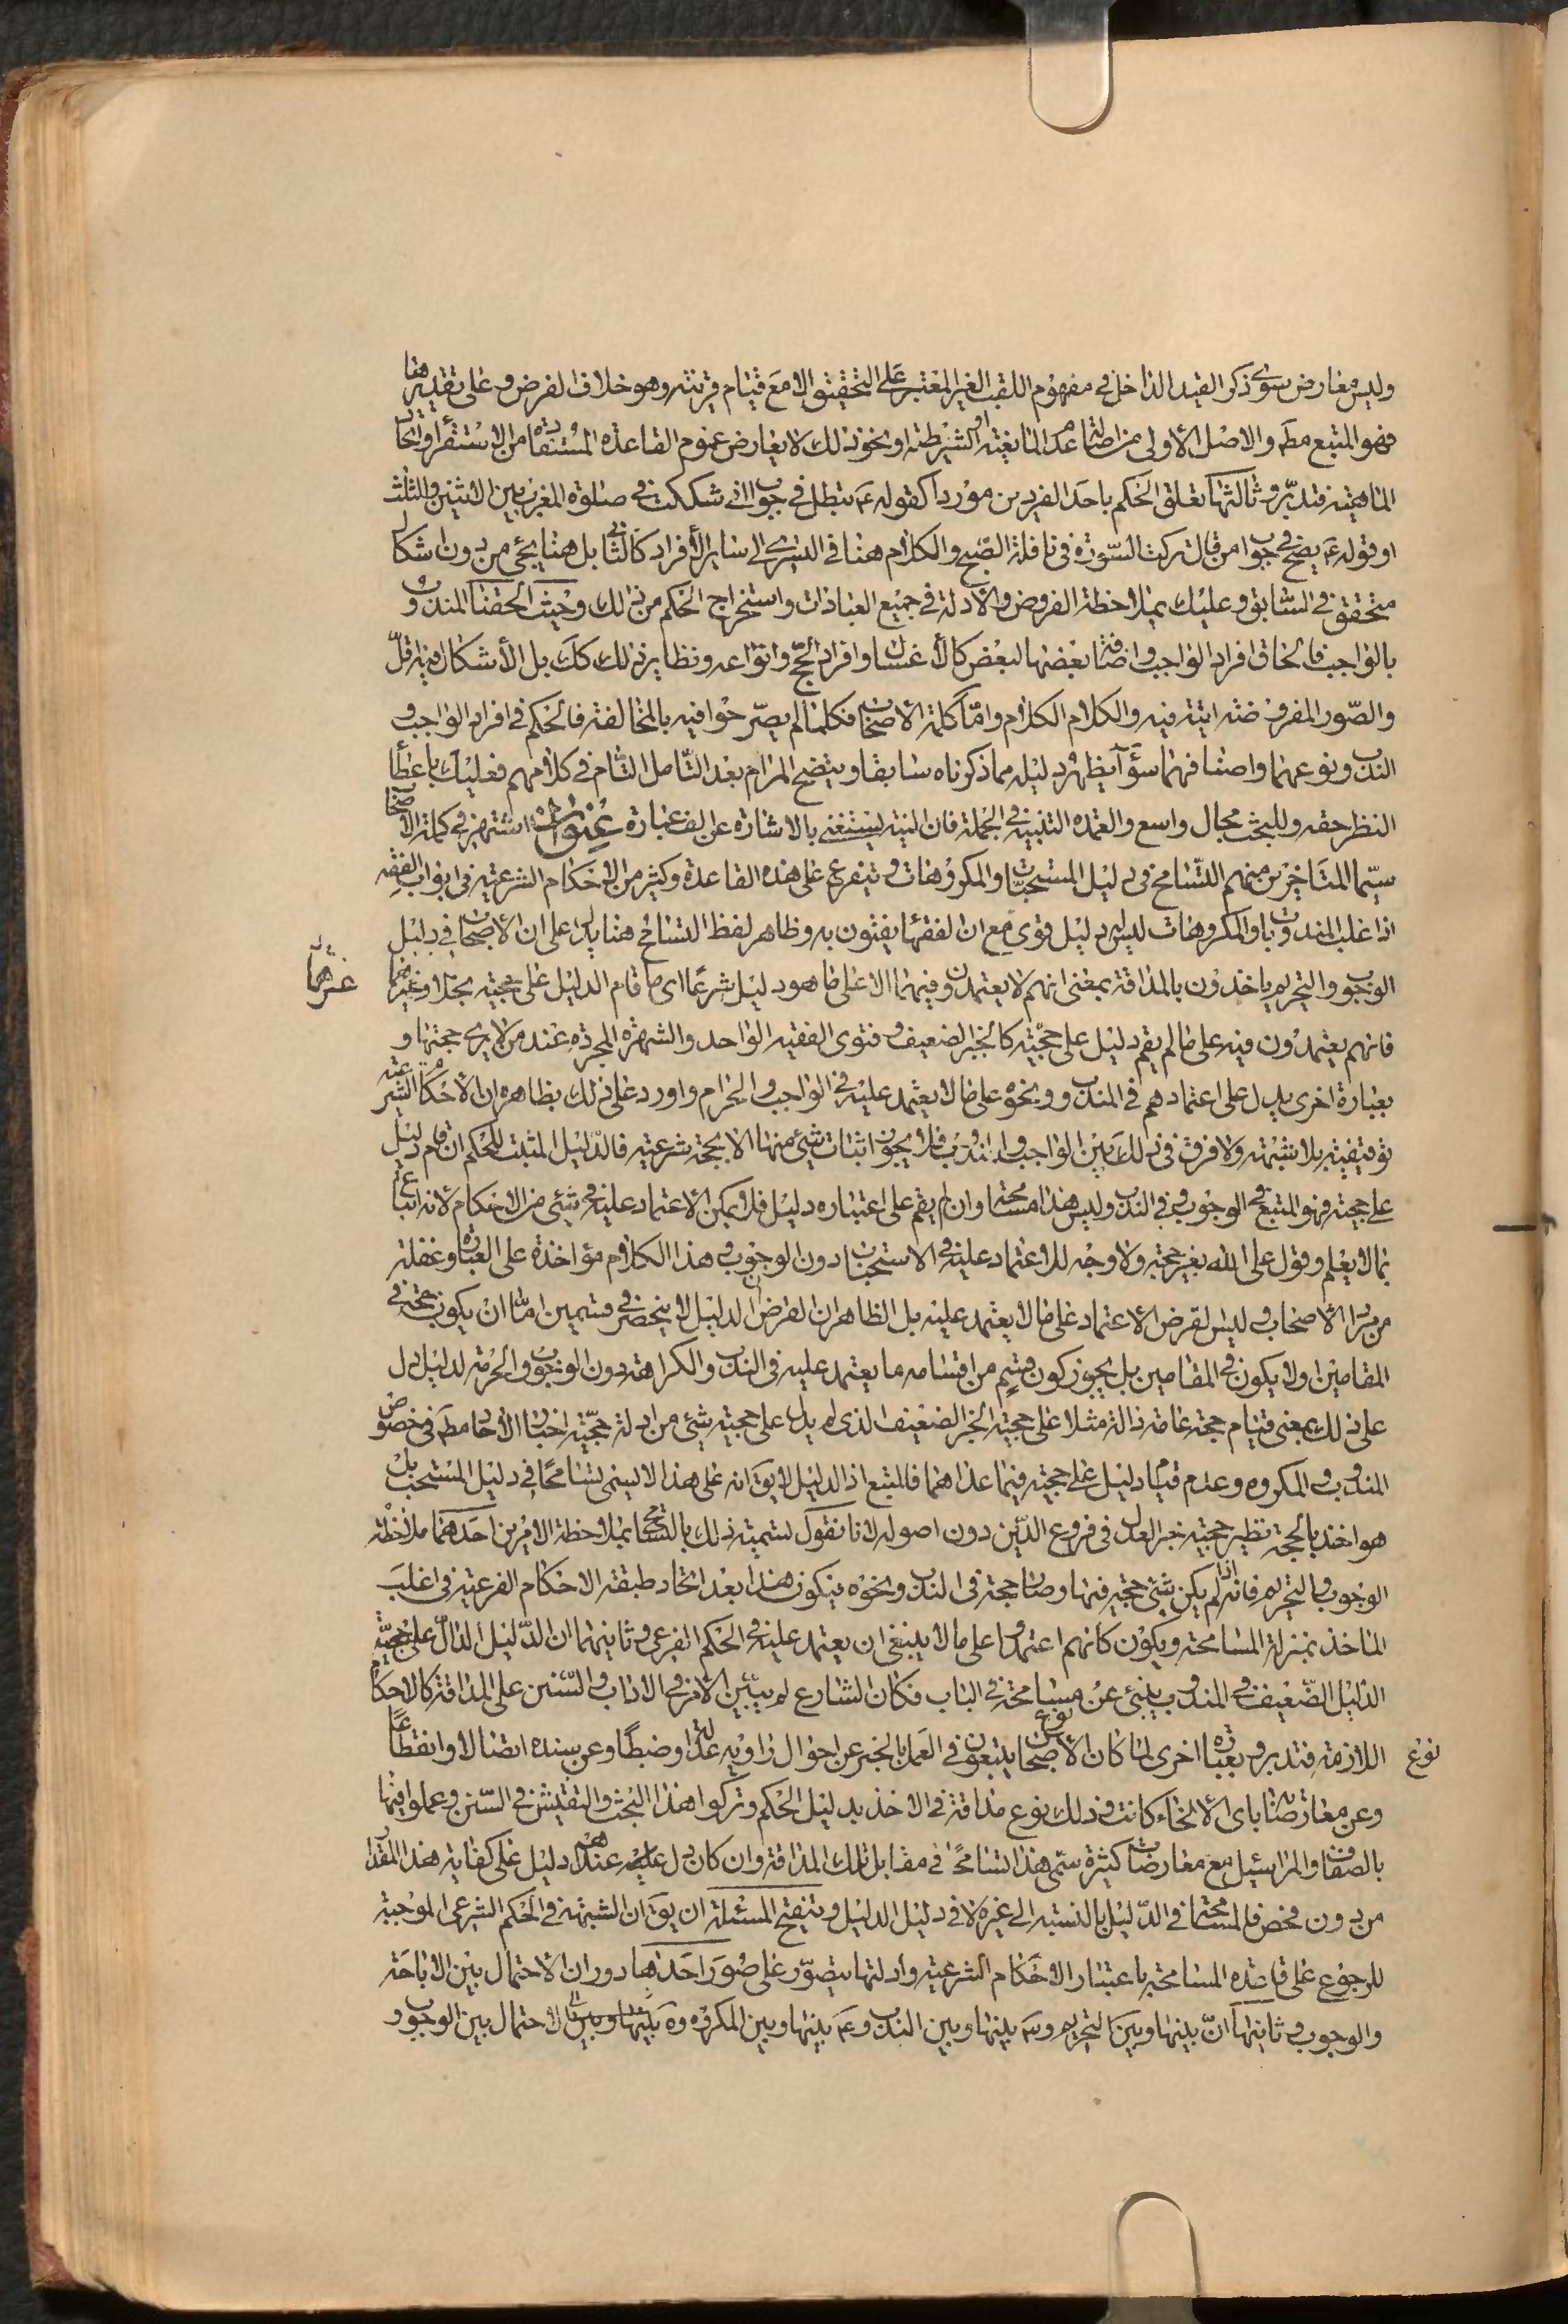 وليس معارض سوى ذكر القيد الداخل في مفهوم اللقب الغير المعتبر على التحقيق الا مع قيام قرينة وهو خلاف الفرض و على تقديرها
فهو المتبع مط والاصل الأولى من اطلاق المانعية او الشرطية او نحو ذلك لا يعارض عموم القاعدة المستفادة من الاستقراء واتحاد
الماهية فتدبر وثالثها تعلق الحكم باحد الفردين موردا كقوله ع تبطل في جواب اني شككت في صلوة المغرب بين الاثنين والثلث
او قوله ع يصح في جواب من قال تركت السورة في نافلة الصبح والكلام هنا في التسري الى ساير الأفراد كالثاني بل هنا يجئ من دون اشكال
متحقق في السابق و عليك بملاحظة الفروض والأدلة في جميع العبادات واستخراج الحكم من ذلك وحيث الحقنا المندوب
بالواجب فالحاق افراد الواجب واضافة بعضها لبعض كالأغسال وافراد الحج وانواعه ونظاير ذلك كك بل الأشكال فيه اقل
والصور المفروضة اتية فيه والكلام الكلام واما كلمة الاصحاب فكلما لم يصرحوا فيه بالمخالفة فالحكم في افراد الواجب و
الندب ونوعهما واصنافهما سوآء يظهر دليله مما ذكرناه سابقا ويتضح المرام بعد التأمل التام في كلامهم فعليك باعطاء
النظر حقه وللبحث مجال واسع والعمدة التنبيه في الجملة فان النبيه يستغنى بالاشارة عن الف عبارة عنوان اشتهر في كلمة الاصحاب
سيما المتأخرين منهم التسامح في دليل المستحبات والمكروهات ويتفرع على هذه القاعدة وكثير من الاحكام الشرعية في ابواب الفقه
اذ اغلب المندوبات والمكروهات ليس له دليل قوى مع ان الفقهاء يفتون به وظاهر لفظ التسامح هنا يدل على ان الأصحاب في دليل
الوجوب والتحريم ياخذون بالمداقة بمعنى انهم لا يعتمدون فيهما الا على ما هو دليل شرعا اى ما قام الدليل على حجيته بخلاف غيرهما
غيرهما
فانهم يعتمدون فيه على ما لم يقم دليل على حجيته كالخبر الضعيف وفتوى الفقيه الواحد والشهرة المجردة عند من لا يرى حجيتها و
بعبارة اخرى يدل على اعتمادهم في المندوب ونحوه على ما لا يعتمد عليه في الواجب والحرام واورد على ذلك بظاهره ان الأحكام الشرعية
توقيفية بلا شبهة ولا فرق في ذلك بين الواجب والندب فلا يجوز اثبات شئ منها الا بحجة شرعية فالدليل المثبت للحكم ان قام دليل
على حجيته فهو المتبع في الوجوب وفي الندب وليس هذا مسامحة وان لم يقم على اعتباره دليل فلا يمكن الاعتماد عليه في شئ من الاحكام لانه اتباع
بما لا يعلم وقول على الله بغير حجة ولا وجه للاعتماد عليه في الاستحباب دون الوجوب وهذا الكلام مؤاخذة على العبارة وغفلة
من مراد الأصحاب وليس لفرض الاعتماد على ما لا يعتمد عليه بل الظاهر ان الفرض ان الدليل لا ينحصر في قسمين اما ان يكون حجة في
المقامين او لا يكون في المقامين بل يجوز كون قسم من اقسامه ما يعتمد عليه في الندب والكراهة دون الوجوب والحرمة لدليل دل
على ذلك بمعنى قيام حجة عامة دالة مثلا على حجية الخبر الضعيف الذى لم يدل على حجيته شئ من ادلة حجية اخبار الآحاد مط في خصوص
المندوب والمكروه وعدم قيام دليل على حجيته فيما عداهما فالمتبع اذ الدليل لا يق انه على هذا لا يسمى تسامحا في دليل المستحب بل
هو اخذ بالحجة نظير حجية خبر العدل في فروع الدين دون اصوله لانا نقول تسمية ذلك بالتسامح بملاحظة الامرين احدهما ملاحظة
الوجوب والتحريم فانه اذا لم يكن شئ حجة فيهما وصار حجة في الندب ونحوه يكون هذا بعد اتحاد طبقة الاحكام الفرعية في اغلب
المأخذ بمنزلة المسامحة ويكون كانهم اعتمدوا على ما لا ينبغى ان يعتمد عليه في الحكم الفرعى وثانيهما ان الدليل الدال على حجية
الدليل الضعيف في المندوب ينبئ عن مسامحة في الباب فكان الشارع لم يبين الأمر في الاداب والسنن على المداقة كالاحكام
اللازمة فتدبر و بعبارة اخرى لما كان الأصحاب يتبعون في العمل بالخبر عن احوال راويه عدالة وضبطا وعن سنده اتصالا وانقطاعا
نوع
وعن معارضاته باى الأنحاء كانت وذلك نوع مداقة في الاخذ بدليل الحكم وتركوا هذا البحث والتفتيش في السنن وعملوا فيها
بالضعاف والمراسيل مع معارضات كثيرة سمى هذا تسامحا في مقابل تلك المداقة وان كان دل عليه عندهم دليل على كفاية هذا المقدار
من دون فحص فالمسامحة في الدليل بالنسبة الى غيره لا في دليل الدليل وتنقيح المسئلة ان يق ان الشبهة في الحكم الشرعى الموجبة
للرجوع على قاعدة المسامحة باعتبار الاحكام الشرعية وادلتها يتصور على صور احدها دوران الاحتمال بين الاباحة
والوجوب وثانيها ان بينها وبين التحريم و بينها وبين الندب وع بينها وبين المكروه وه بينها وبين الاحتمال بين الوجوب و